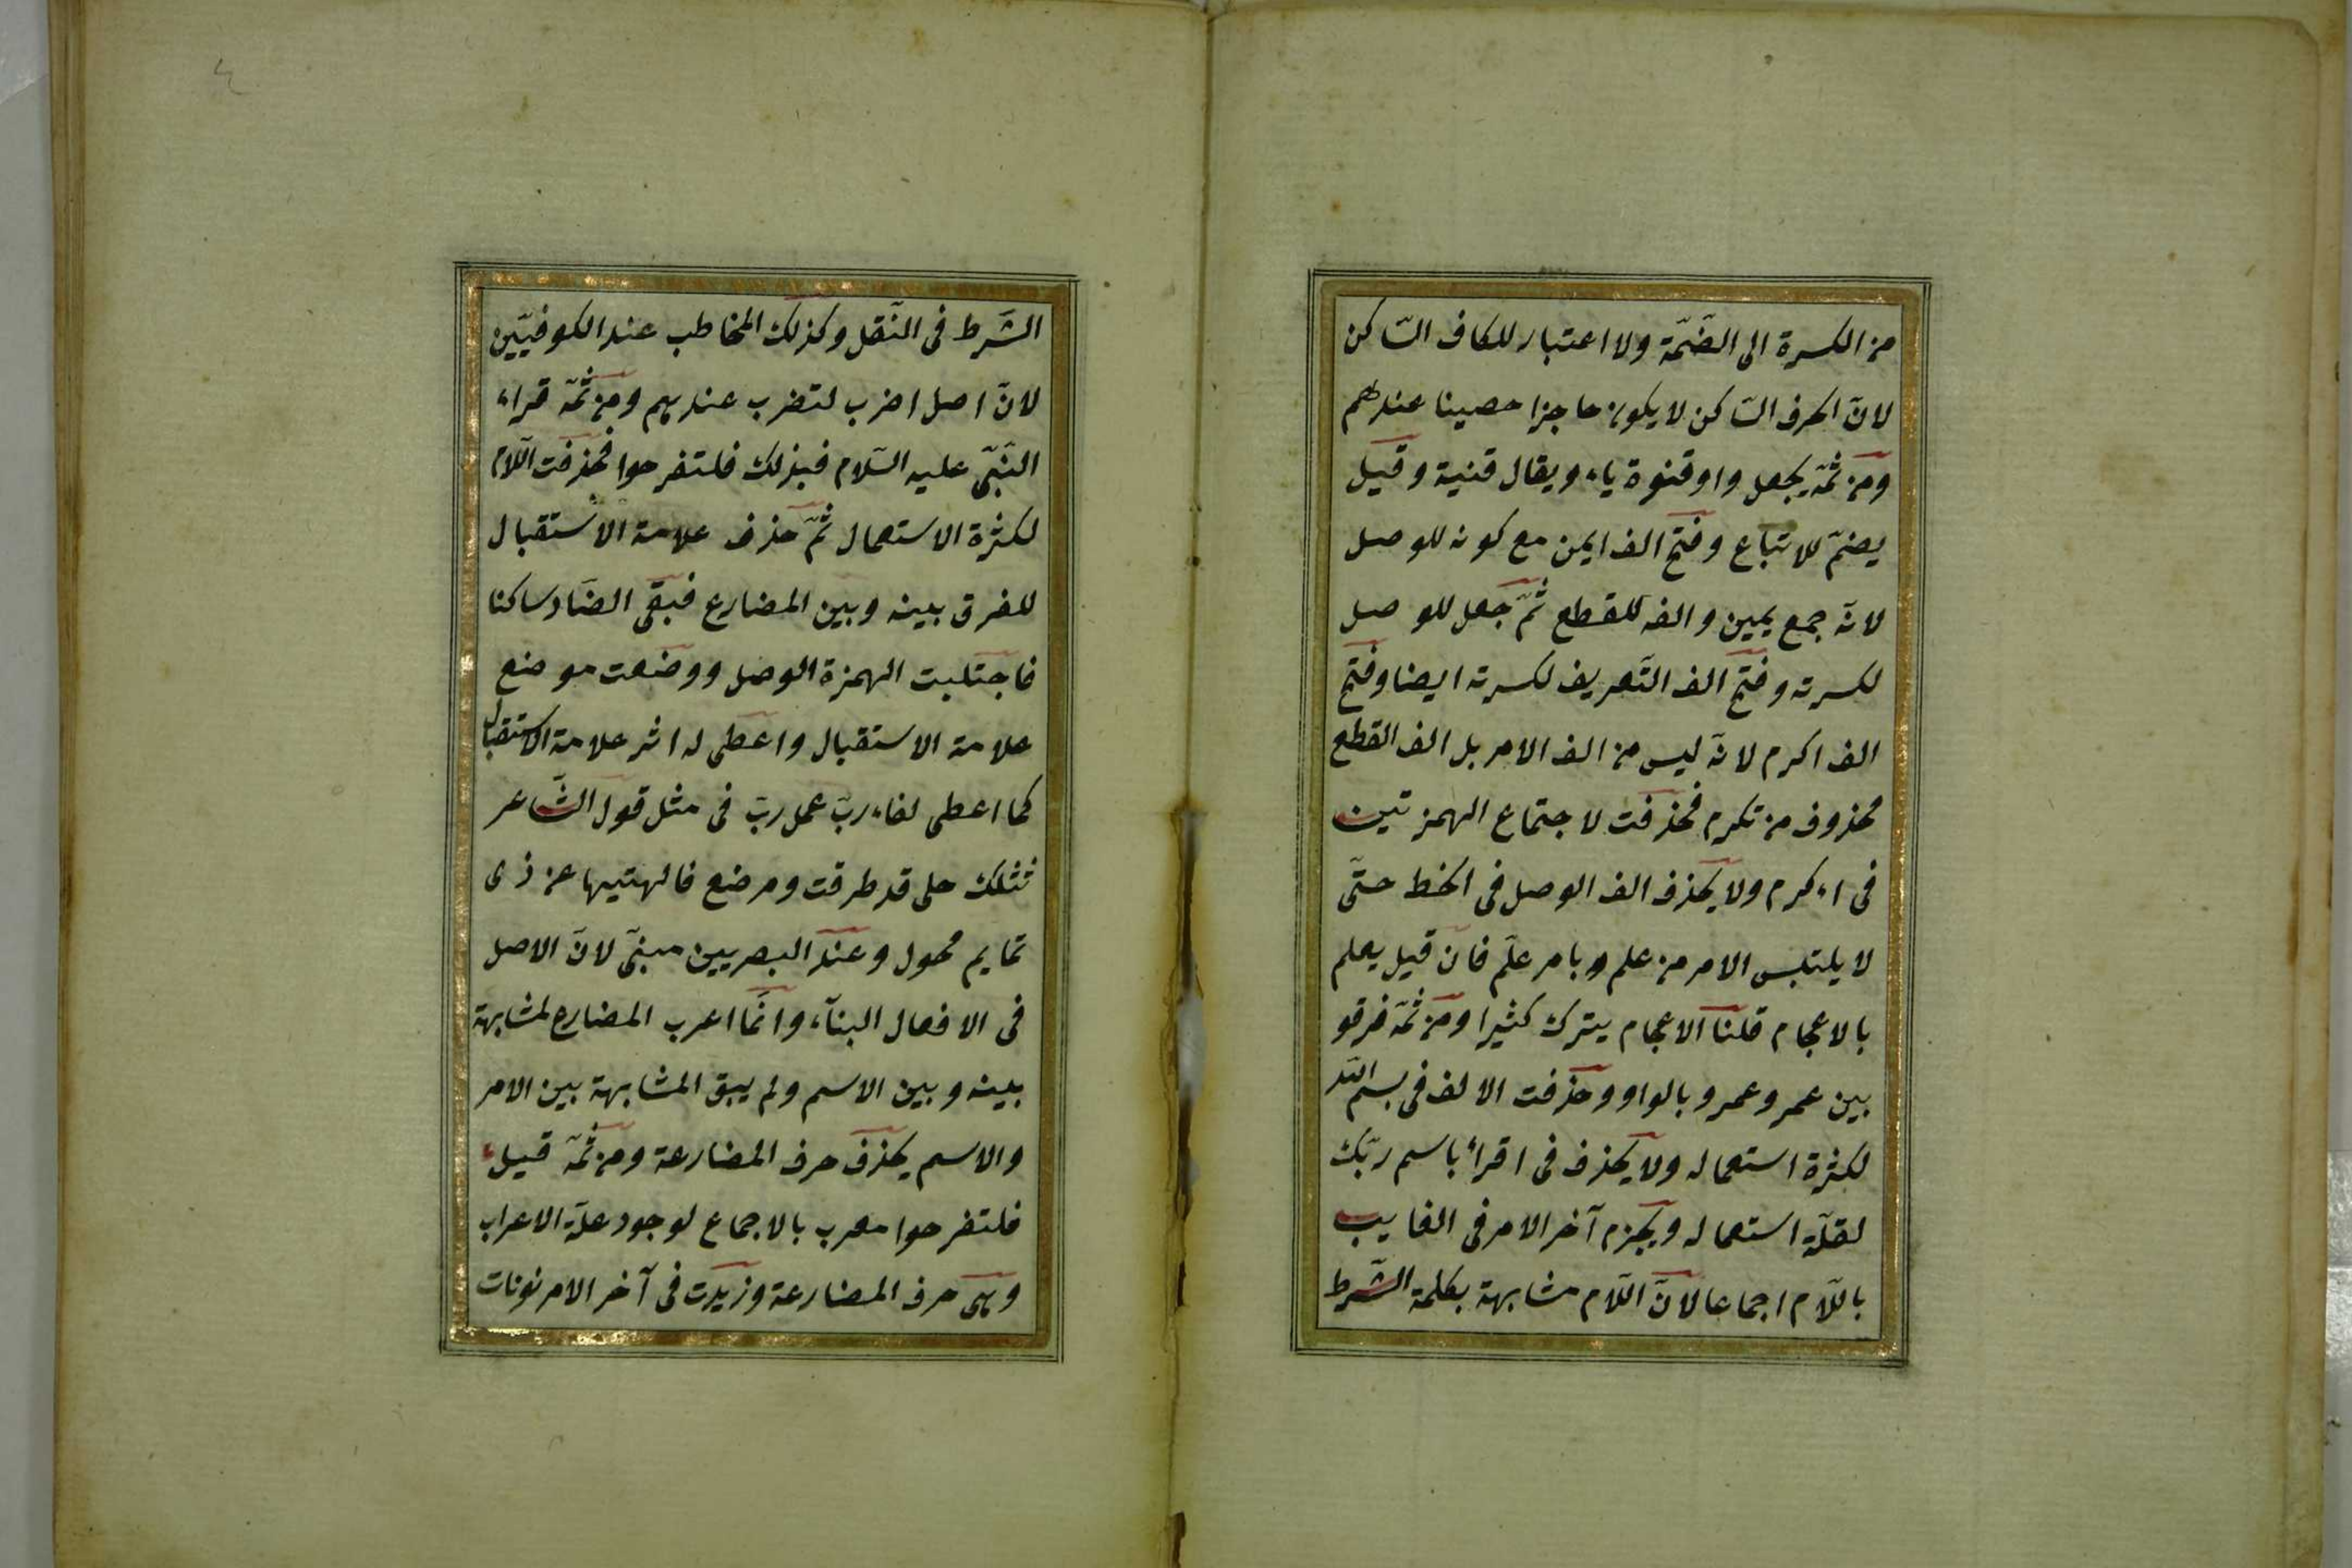 من الكسرة الى الضّمّة ولا اعتبار للكاف السّاكن
لانّ الحرف السّاكن لا يكون حاجزا حصينا عندهم
ومن ثمّه يجعل واو قنوة ياء ويقال قنية وقيل
يضمّ للاتباع وفتح الف ايمن مع كونه للوصل
لانّه جمع يمين والفه للقطع ثمّ جعل للوصل
لكسرته وفتح الف التّعريف لكسرته ايضا وفتح
الف اكرم لانّه ليس من الف الامر بل الف القطع
محذوف من تكرم فحذفت لاجتماع الهمزتين
فى اءكرم ولا يحذف الف الوصل فى الخط حتّى
لا يلتبس الامر من علم وبامر علّم فان قيل يعلم
بالاعجام قلنا الاعجام يترك كثيرا ومن ثمّه فرقو
بين عمر وعمرو بالواو وحذفت الالف فى بسم الله
لكثرة استعماله ولا يحذف فى اقراء باسم ربّك
لقلّة استعماله ويجزم آخر الامر فى الغايب
باللّام اجماعا لانّ اللّام مشابهة بكلمة الشّرط
الشّرط فى النّقل وكذلك المخاطب عند الكوفيّين
لانّ اصل اضرب لتضرب عندهم ومن ثمّه قراء
النّبىّ عليه السّلام فبذلك فلتفرحوا فحذفت اللّام
لكثرة الاستعمال ثمّ حذف علامة الاستقبال
للفرق بينه وبين المضارع فبقى الضّاد ساكنا
فاجتلبت الهمزة الوصل ووضعت موضع
علامة الاستقبال واعطى له اثر علامة الاستقبال
كما اعطى لفاء ربّ عمل ربّ فى مثل قول الشّاعر
فثلك حلى قد طرقت ومرضع فالهتيها عن ذى
تمايم محول وعند البصريين مبنىّ لانّ الاصل
فى الافعال البنآء وانّما اعرب المضارع لمشابهة
بينه وبين الاسم ولم يبق المشابهة بين الامر
والاسم يحذف حرف المضارعة ومن ثمّه قيل
فلتفرحوا معرب بالاجماع لوجود علّة الاعراب
وهى حرف المضارعة وزيدت فى آخر الامر نونات